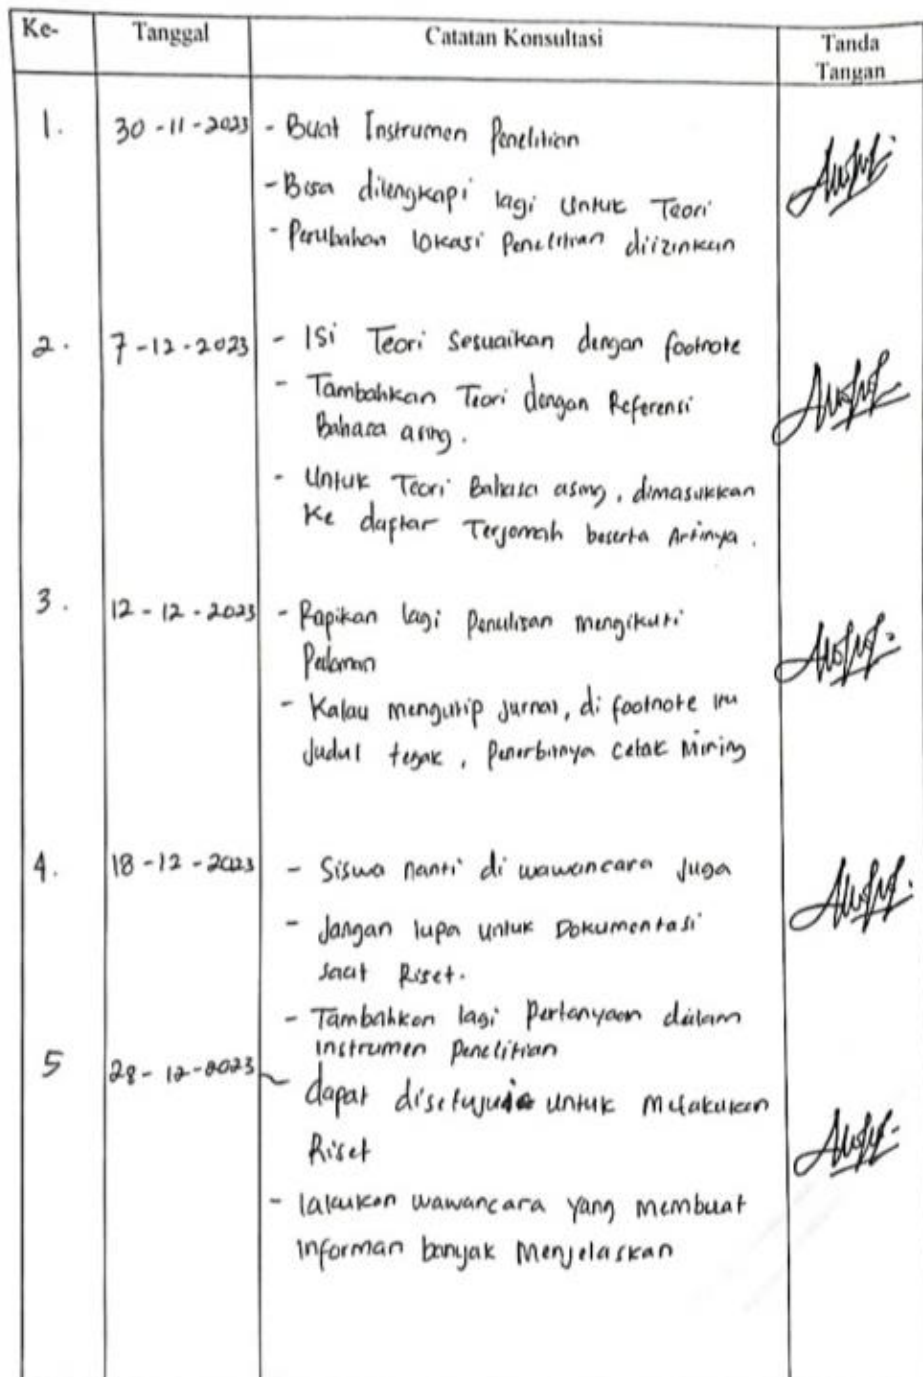 Ke- Tanggal Catatan Konsultasi Tanda
Tangan
1. 30-11-2023 - Buat Instrumen Penelitian
- Bisa dilengkapi lagi Untuk Teori
- Perubahan lokasi Penelitian diizinkan
2. 7-12-2023 - Isi Teori Sesuaikan dengan footnote
- Tambahkan Teori dengan Referensi
Bahasa asing.
- Untuk Teori Bahasa asing, dimasukkan
Ke daftar Terjemah beserta Artinya.
3. 12-12-2023 - Rapikan lagi Penulisan mengikuti
Pedoman
- Kalau mengutip jurnal, di footnote itu
Judul tegak, Penerbitnya Cetak Miring
4. 18-12-2023 - Siswa nanti di wawancara Juga
- Jangan lupa untuk Dokumentasi
saat Riset.
- Tambahkan lagi Pertanyaan dalam
instrumen Penelitian
5 28-12-2023 - dapat disetujui untuk Melakukan
Riset
- lakukan wawancara yang membuat
informan banyak Menjelaskan